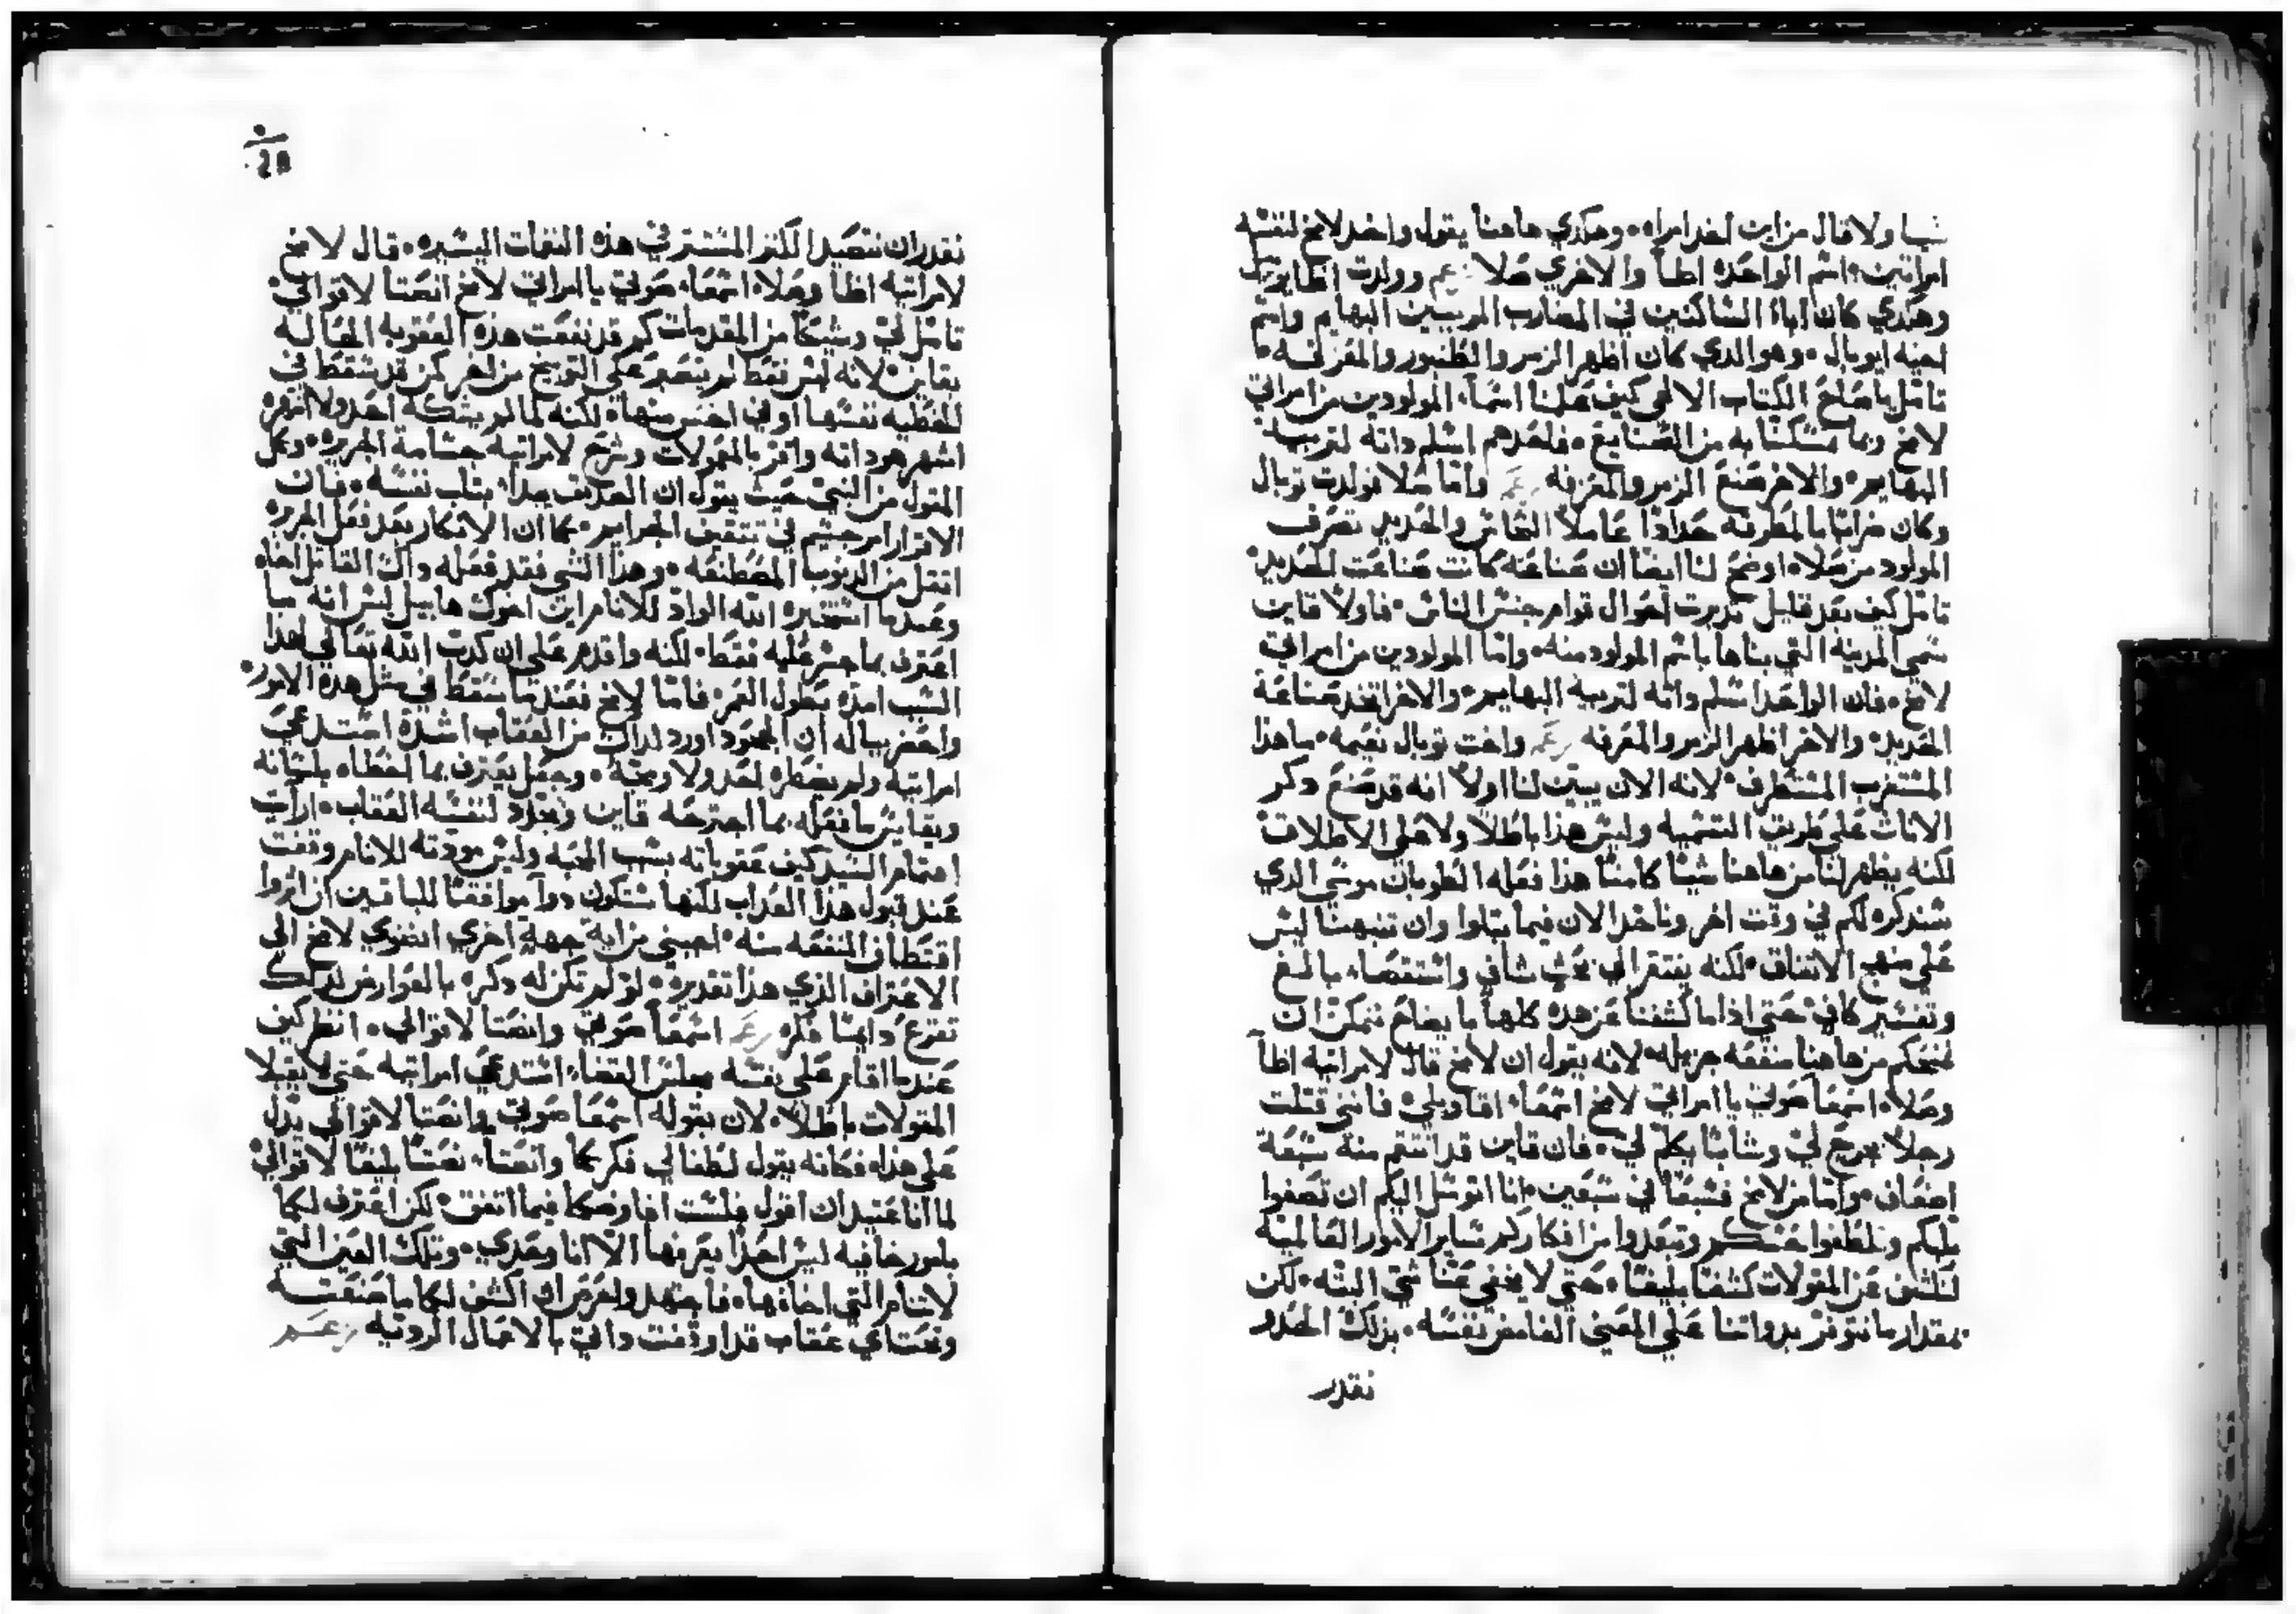 نسبا ولا قال من اين اخد امراه. وهكدي هاهنا يقول واخد لامخ لنفسه
امراتين. اسم الواحده اطا والاخري صلا زعم وولدت اطا يوبل
وهكدي كان اباء الساكنين في المضارب المربيين البهايم واسم
اخيه ايوبال. وهو الدي كان اظهر الزمر والطنبور والمعزفه
تامل يا صاح الكتاب الالهي كيف علمنا اسماء المولودين من امراتي
لامخ وما تمسكنا به من الصنايع. فاحدهم اسلم داته لتربية
البهايم. والاخر صنع الزمر والمعزفه زعم واما صلا فولدت توبال
وكان ضرابا بالمطرقه حدادا عاملا النحاس والحديد تصرف
المولود من صلا. اوضح لنا ايضا ان صناعته كانت صناعة الحديد.
تامل كيف بعد قليل تدبرت احوال قوام جنس الناس. فاولا قاين
سمي المدينه التي بناها باسم المولود منه. واما المولودين من امراتي
لامخ. فان الواحد اسلم داته لتربية البهايم. والاخر اتخد صناعة
الحديد. والاخر اظهر الزمر والمعزفه زعم واخت توبال نعيمه. ما هدا
المستغرب المستطرف. لانه الان يبين لنا اولا انه قد صنع دكر
الاناث علي طريق التسميه وليس هدا باطلا ولا علي الاطلاق.
لكنه يظهر لنا من هاهنا شيئا كامنا هدا فعله الطوبان موسي الدي
سندكره لكم في وقت اخر وناخد الان فيما يتلوا وان تنبهنا ليس
علي منهج الاتفاق. لكنه يفتقر الي بحث شافي واستقصاء بالغ
وتفسير كافي حتي ادا ما كشفنا عن هده كلها ما يضاهي نتمكن ان
نمنحكم من هاهنا منفعه جزيله. لانه يقول ان لامخ قال لامراتيه اطا
وصلا. اسمعا صوتي يا امراتي لامخ اسمعا اقاويلي. فانني قتلت
رجلا بجرح لي وشابا بكلم لي. فان قاين قد انتقم منه سبعة
اضعاف. واما من لامخ فسبعا في سبعين. انا اتوسل اليكم ان تصغوا
مليكم وتلطفوا حسكم وتبعدوا من افكاركم ساير الامور العالميه
لنكشف عن المقولات كشفا بليغا. حتي لا يخفي عنا شي البته. لكن
بمقدار ما نتوفر بدواتنا علي المعني الغامض نفسه. بدلك الحدر
نقدر
نقدر ان نتصيد الكنز المستتر في هده النغمات اليسيره. قال لامخ
لامراتيه اطا وصلا. اسمعا صوتي يا امراتي لامخ انصتا لاقوالي.
تامل لي وشيكا من المقدمات كم قد نفعت هده العقوبه الحاله
بقاين. لانه ليس فقط لم يتصبر علي التوبيخ من اخر كمن قد سقط في
الخطيه نفسها او في اخس منها. لكنه لما لم يبتكه احد ولا اقهره
اشهر هو داته واقر بالمقولات وشرح لامراتيه جسامة الجريره. وكل
المقول من النبي حيث يقول ان الصديق بيدا بثلب نفسه. فان
الاقرار امر جسيم في تثقيف الجراير. كما ان الانكار بعد فعل الجريره
اثقل من الدنوب المصطنعه. وهدا الشي فقد فعله داك القاتل اخاه
وعندما استخبره الله الواد للانام اين اخوك هابيل ليس انه ما
اعترف بما جسر عليه فقط. لكنه واقدم علي ان كدب الله تعالي لهدا
السبب امده بطول العمر. فاما لامخ فعندما سقط في مثل هده الامور.
واخضر بباله ان الجحود اورد لداك من العقاب اشده استدعي
امراتيه ولم يضطره احد ولا وبخه. وجعل يعترف بما اخطاه بلسانه
ويقايس ما فعله بما اجترحه قاين وتجرد لنفسه العقاب. ارايت
اهتمام السيد كيف عقوباته بسبب المحبه وليس مودته للانام وقفت
عند قبول هدا العداب لكنها ستكون دوا موافقا للباقين ان اثروا
اقتطاف المنفعه منه. اجبني من اية جهة اخري انضوي لامخ الي
الاعتراف الدي هدا تقديره. لو لم تكن له دكره بالعوارض لداك
تقرع دايما فكره زعم اسمعا صوتي وانصتا لاقوالي. انظر كيف
عندما اقام علي نفسه مجلس القضا. استدعي امراتيه حتي لا يقبلا
المقولات باطلا. لان بقوله اسمعا صوتي وانصتا لاقوالي يدل
علي هدا. فكانه يقول لطفا لي فكركما وانصتا. نصتا بليغا لاقوالي.
لما انا عتيد ان اقول فلست افاوضكما فيما اتفق. لكن اعترف لكما
بامور خافيه ليس احدا يعرفها الا انا وحدي. وتلك العين التي
لا تنام التي اخافها. فاجتهد واحرص ان اكشف لكما ما صنعته
وتحت اي عقاب قد اوقفت داتي بالاعمال الرديه زعم